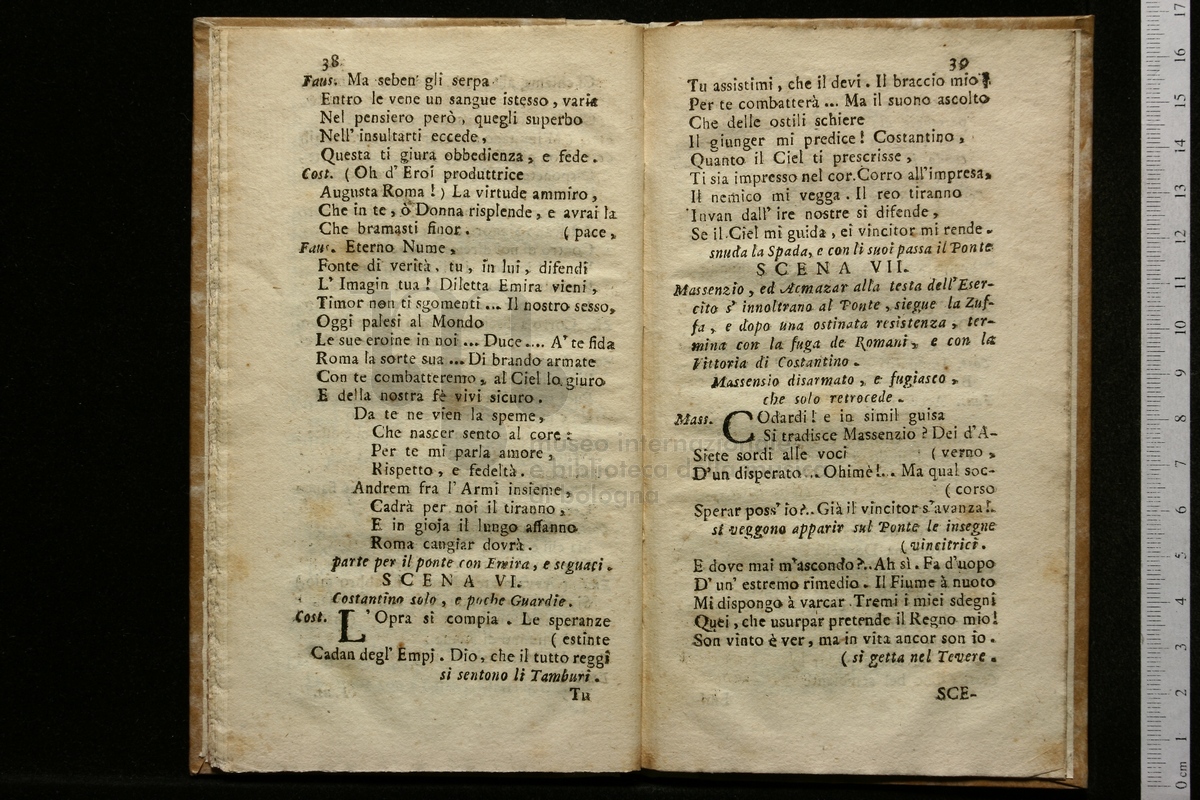 38
Faus. Ma seben' gli serpa
Entro le vene un sangue istesso, varia
Nel pensiero però, quegli superbo
Nell' insultarti eccede,
Questa ti giura obbedienza, e fede.
Cost. (Oh d' Eroi produttrice
Augusta Roma!) La virtude ammiro,
Che in te, ò Donna risplende, e avrai la
Che bramasti finor. (pace,
Faus. Eterno Nume,
Fonte di verità, tu, in lui, difendi
L' Imagin tua! Diletta Emira vieni,
Timor non ti sgomenti... Il nostro sesso,
Oggi palesi al Mondo
Le sue eroine in noi... Duce.... A' te fida
Roma la sorte sua... Di brando armate
Con te combatteremo, al Ciel lo giuro
E della nostra fè vivi sicuro.
Da te ne vien la speme,
Che nascer sento al core:
Per te mi parla amore,
Rispetto, e fedeltà.
Andrem fra l' Armi insieme,
Cadrà per noi il tiranno,
E in gioja il lungo affanno
Roma cangiar dovrà.
parte per il ponte con Emira, e seguaci.
SCENA VI.
Costantino solo, e poche Guardie.
Cost. L'Opra si compia. Le speranze
(estinte
Cadan degl' Empj. Dio, che il tutto reggi
si sentono li Tamburi.
Tu
39
Tu assistimi, che il devi. Il braccio mio
Per te combatterà... Ma il suono ascolto
Che delle ostili schiere
Il giunger mi predice! Costantino,
Quanto il Ciel ti prescrisse,
Ti sia impresso nel cor. Corro all'impresa,
Il nemico mi vegga. Il reo tiranno
Invan dall' ire nostre si difende,
Se il Ciel mi guida, ei vincitor mi rende.
snuda la Spada, e con li suoi passa il Ponte
SCENA VII.
Massenzio, ed Acmazar alla testa dell'Eser-
cito s' innoltrano al Ponte, siegue la Zuf-
fa, e dopo una ostinata resistenza, ter-
mina con la fuga de Romani, e con la
Vittoria di Costantino.
Massensio disarmato, e fugiasco,
che solo retrocede.
Mass. COdardi! e in simil guisa
Si tradisce Massenzio? Dei d'A-
Siete sordi alle voci (verno,
D'un disperato... Ohimè!... Ma qual soc-
(corso
Sperar poss' io?.. Già il vincitor s'avanza!.
si veggono apparir sul Ponte le insegne
(vincitrici.
E dove mai m'ascondo?.. Ah sì. Fa d'uopo
D' un' estremo rimedio. Il Fiume à nuoto
Mi dispongo à varcar. Tremi i miei sdegni
Quei, che usurpar pretende il Regno mio!
Son vinto è ver, ma in vita ancor son io.
(si getta nel Tevere.
SCE-
museo internazionale
e biblioteca della musica
di bologna
0 cm 1 2 3 4 5 6 7 8 9 10 11 12 13 14 15 16 17